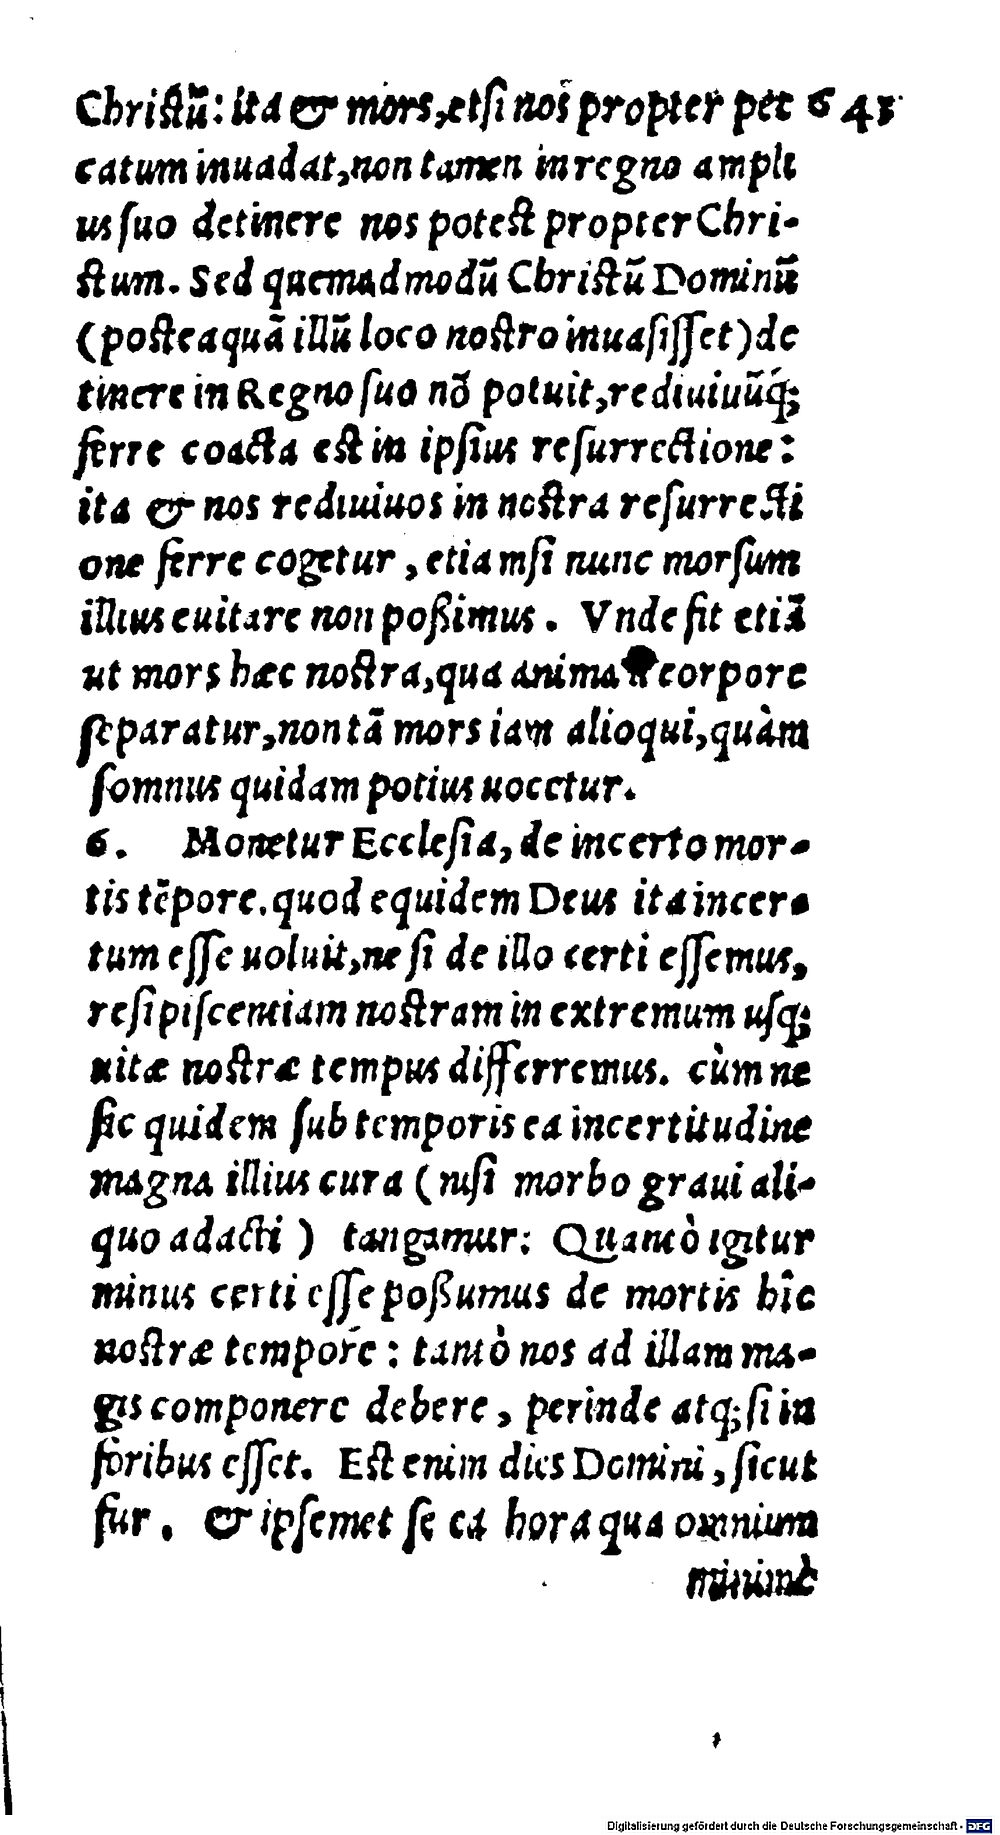 Christũ: ita & mors, etsi nos propter pec 643
catum inuadat, non tamen in regno ampli
us suo detinere nos potest propter Chri-
stum. Sed quemadmodũ Christũ Dominũ
(posteaquã illũ loco nostro inuasisset) de
tinere in Regno suo nõ potuit, rediuiuũq́;
ferre coacta est in ipsius resurrectione:
ita & nos rediuiuos in nostra resurrecti
one ferre cogetur, etiamsi nunc morsum
illius euitare non poßimus. Vnde fit etiã
ut mors hæc nostra, qua anima corpore
separatur, non tã mors iam alioqui, quàm
somnus quidam potius uocetur.
6. Monetur Ecclesia, de incerto mor-
tis tẽpore. quod equidem Deus ita incer-
tum esse uoluit, ne si de illo certi essemus,
resipiscentiam nostram in extremum usq;
uitæ nostræ tempus differremus. cùm ne
sic quidem sub temporis ea incertitudine
magna illius cura (nisi morbo graui ali-
quo adacti) tangamur: Quantò igitur
minus certi esse poßumus de mortis hîc
nostræ tempore: tantò nos ad illam ma-
gis componere debere, perinde atq; si in
foribus esset. Est enim dies Domini, sicut
fur. & ipsemet se ea hora qua omnium
minimè
Digitalisierung gefördert durch die Deutsche Forschungsgemeinschaft - DFG